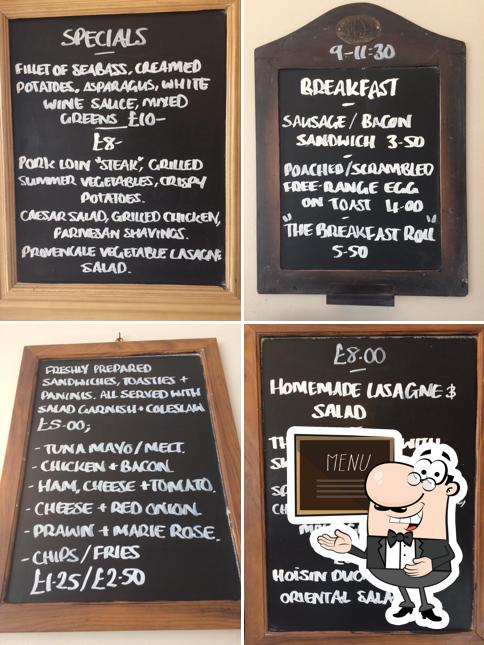 SPECIALS
FILLET OF SEABASS, CREAMED
POTATOES, ASPARAGUS, WHITE
WINE SAUCE, MIXED
GREENS £10-
£8-
PORK LOIN "STEAK", GRILLED
SUMMER VEGETABLES, CRISPY
POTATOES.
CAESAR SALAD, GRILLED CHICKEN,
PARMESAN SHAVINGS.
PROVENCALE VEGETABLE LASAGNE
SALAD.
9-11:30
BREAKFAST
SAUSAGE / BACON
SANDWICH 3-50
POACHED/SCRAMBLED
FREE-RANGE EGG
ON TOAST 4-00
"THE BREAKFAST ROLL"
5-50
FRESHLY PREPARED
SANDWICHES, TOASTIES +
PANINIS. ALL SERVED WITH
SALAD GARNISH + COLESLAW
£5-00;
- TUNA MAYO / MELT.
- CHICKEN + BACON.
- HAM, CHEESE + TOMATO.
- CHEESE + RED ONION.
- PRAWN + MARIE ROSE.
- CHIPS / FRIES
£1-25/£2-50
£8-00
HOMEMADE LASAGNE &
SALAD
WITH
MENU
HOISIN
ORIENTAL